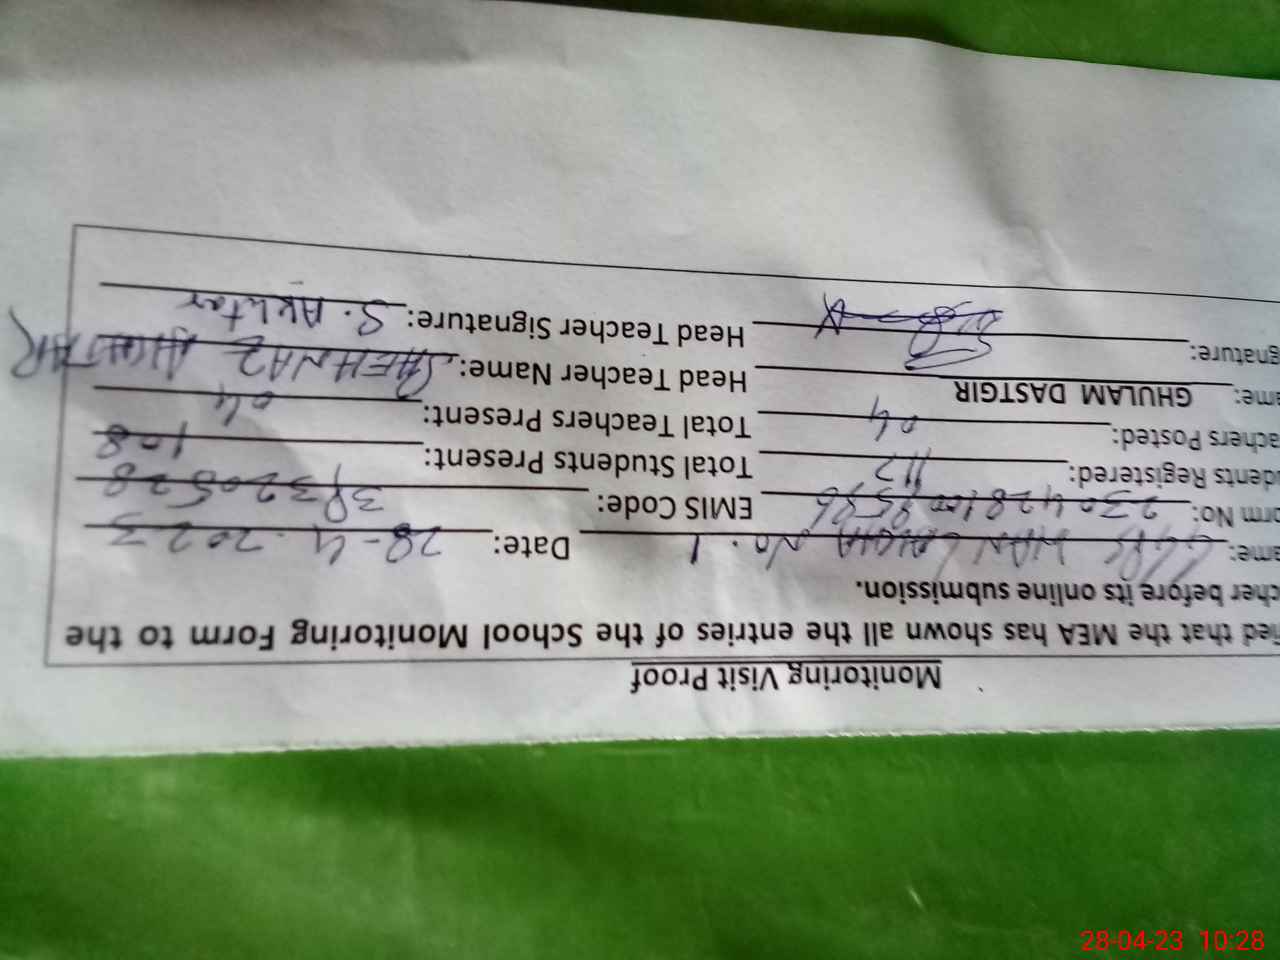 Monitoring Visit Proof
ied that the MEA has shown all the entries of the School Monitoring Form to the
cher before its online submission.
ame: GGPS No. 1 Date: 28-4-2023
orm No: EMIS Code: 38320528
dents Registered: 117 Total Students Present: 108
achers Posted: 04 Total Teachers Present: 04
ame: GHULAM DASTGIR Head Teacher Name: SHEHNAZ AKHTAR
gnature: Head Teacher Signature: S. Akhtar
28-04-23 10:28